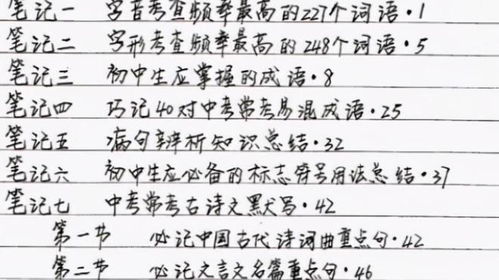 笔记一 字音考查频率最高的227个词语·1
笔记二 字形考查频率最高的248个词语·5
笔记三 初中生应掌握的成语·8
笔记四 巧记40对中考常考易混成语·25
笔记五 病句辨析知识总结·32
笔记六 初中生应必备的标志符号用法总结·37
笔记七 中考常考古诗文默写·42
第一节 必记中国古代诗词曲重点句·42
第二节 必记文言文名篇重点句·46